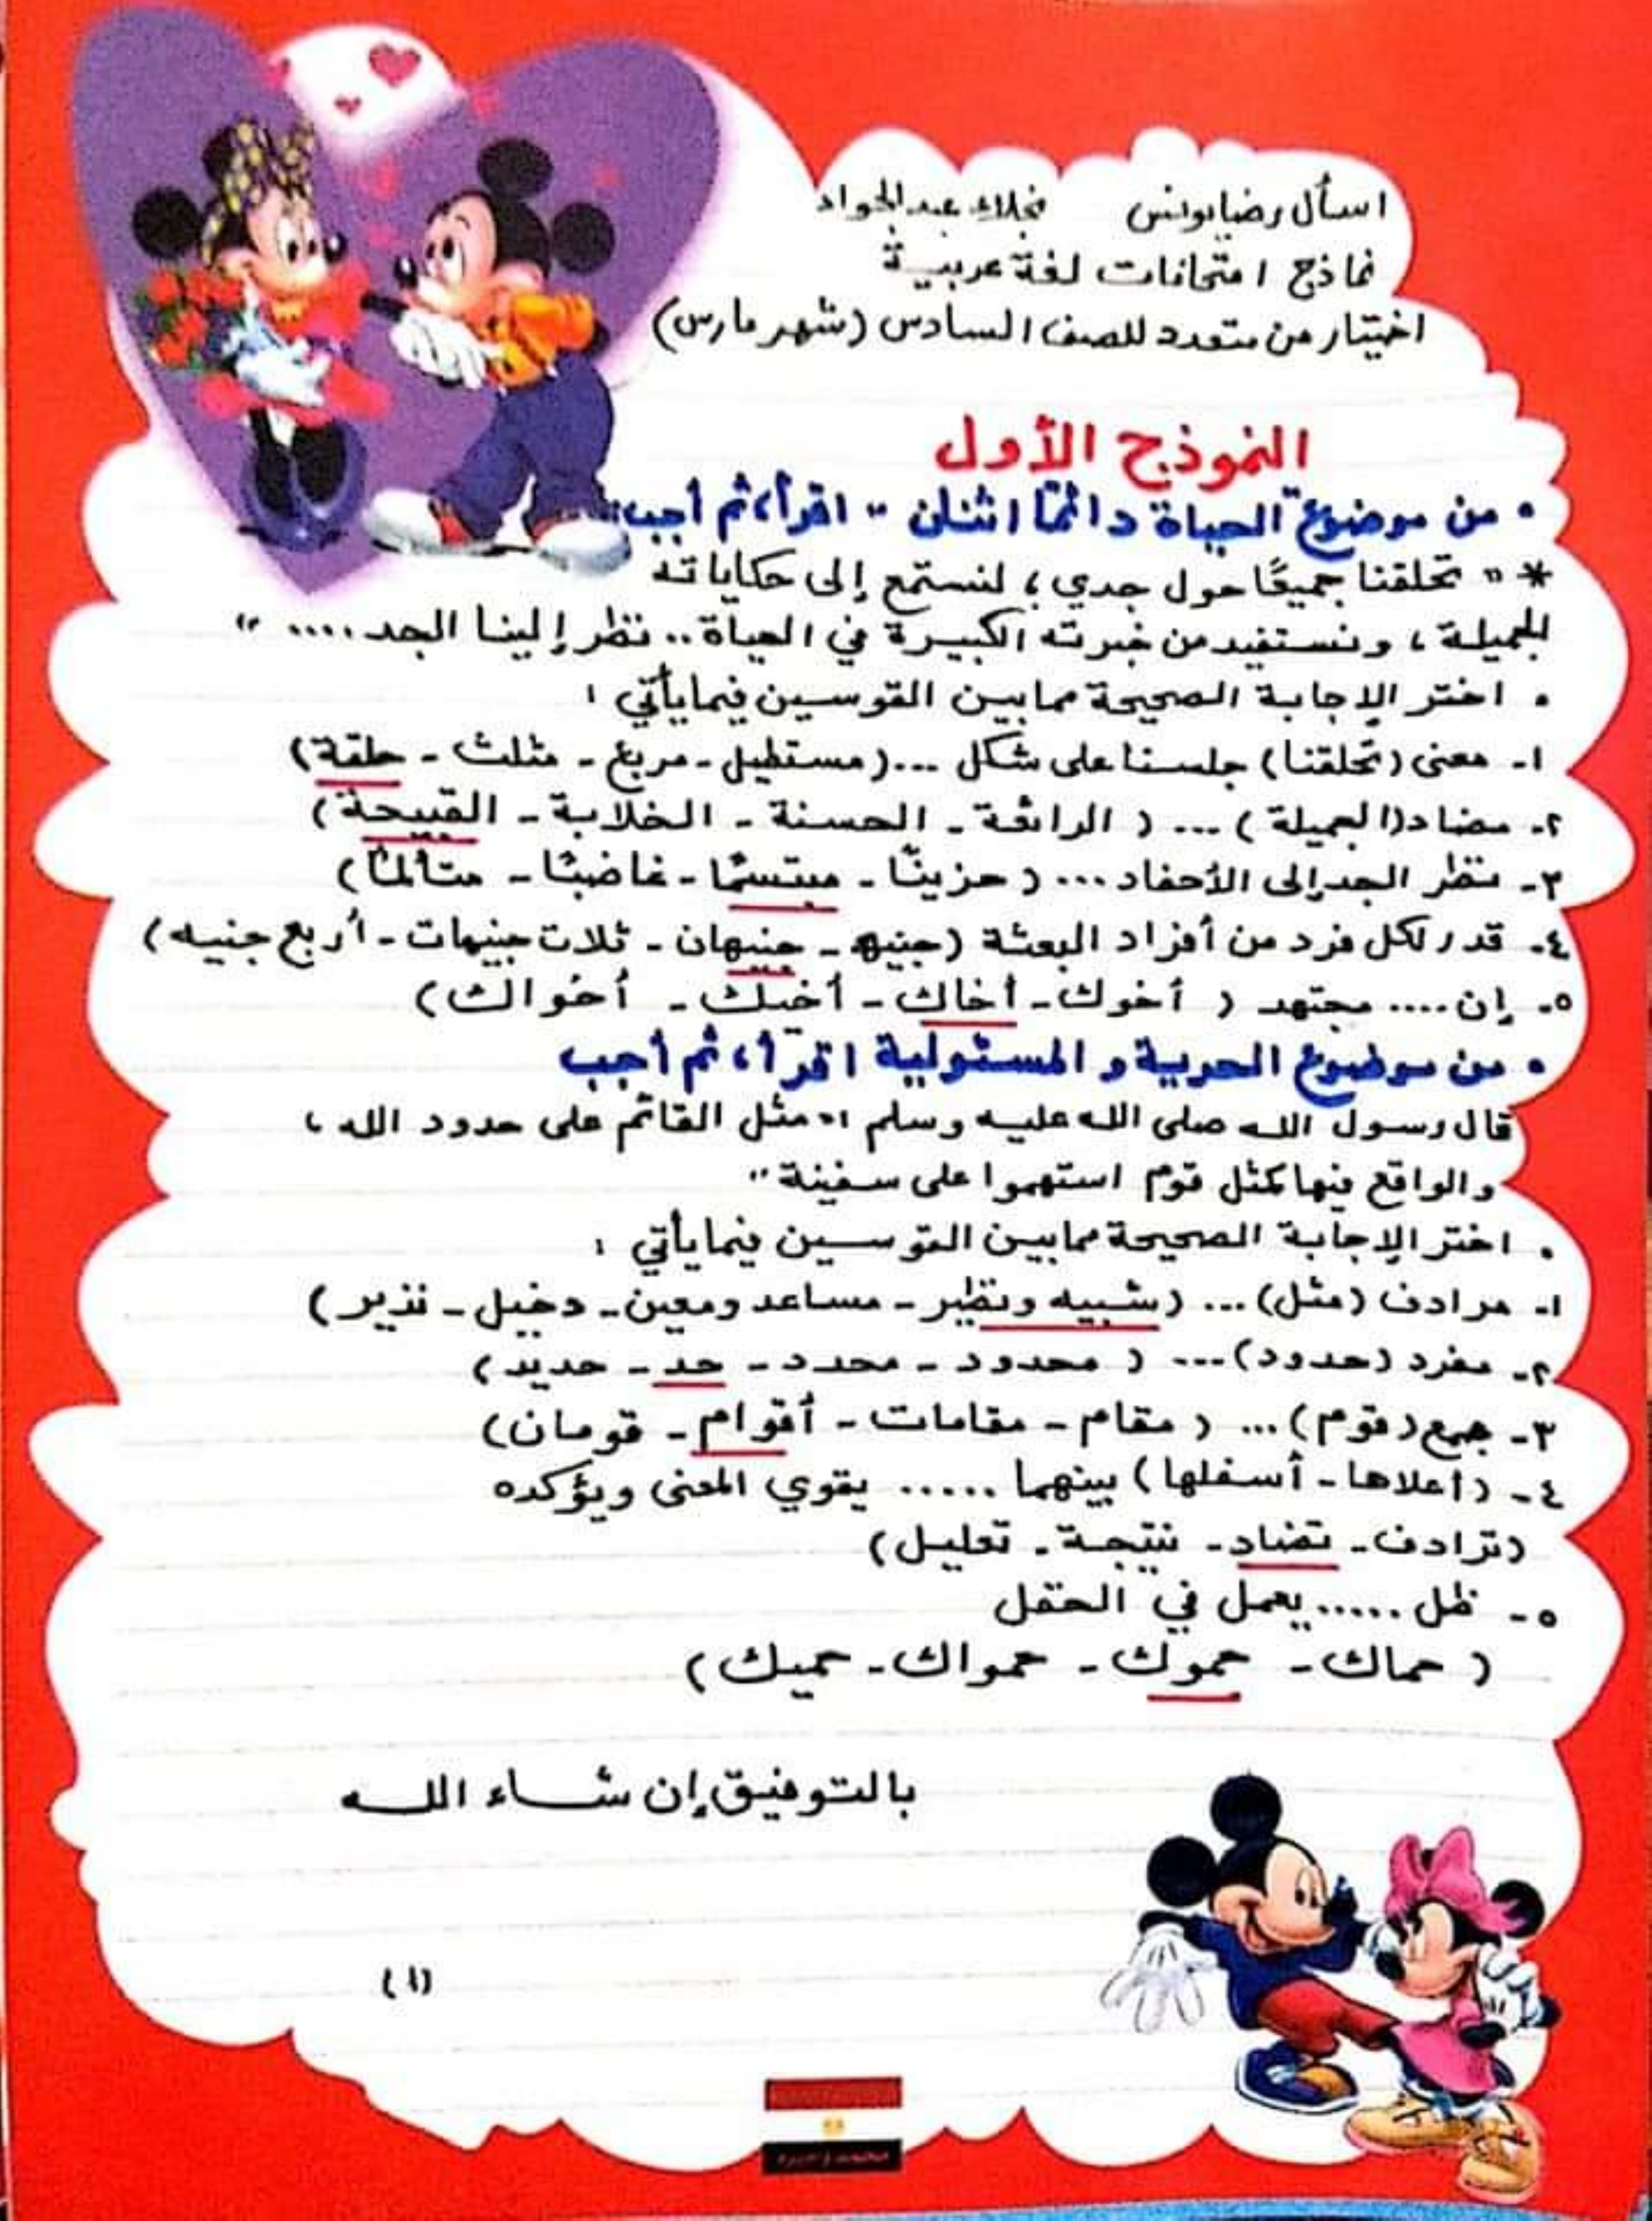 اسأل رضا يونس نجلاء عبد الجواد
نماذج امتحانات لغة عربية
اختيار من متعدد للصف السادس (شهر مارس)
النموذج الأول
• من موضوع "الحياة دائمًا اثنان" اقرأ، ثم أجب:
* "تحلقنا جميعًا حول جدي؛ لنستمع إلى حكاياته
الجميلة، ونستفيد من خبرته الكبيرة في الحياة.. نظر إلينا الجد...."
• اختر الإجابة الصحيحة مما بين القوسين فيما يأتي:
١- معنى (تحلقنا) جلسنا على شكل ...(مستطيل - مربع - مثلث - حلقة)
٢- مضاد (الجميلة) ... (الرائعة - الحسنة - الخلابة - القبيحة)
٣- نظر الجد إلى الأحفاد... (حزينًا - مبتسمًا - غاضبًا - متألمًا)
٤- قدر لكل فرد من أفراد البعثة (جنيه - جنيهان - ثلاث جنيهات - أربع جنيه)
٥- إن.... مجتهد (أخوك - أخاك - أخيك - أخواك)
• من موضوع الحرية و المسئولية اقرأ، ثم أجب
قال رسول الله صلى الله عليه وسلم: "مثل القائم على حدود الله،
والواقع فيها كمثل قوم استهموا على سفينة"
• اختر الإجابة الصحيحة مما بين القوسين فيما يأتي:
١- مرادف (مثل)... (شبيه ونظير - مساعد ومعين - دخيل - نذير)
٢- مفرد (حدود)... (محدود - محدد - حد - حديد)
٣- جمع (قوم)... (مقام - مقامات - أقوام - قومان)
٤- (أعلاها - أسفلها) بينهما ..... يقوي المعنى ويؤكده
(ترادف - تضاد - نتيجة - تعليل)
٥- ظل ..... يعمل في الحقل
(حماك - حموك - حمواك - حميك)
بالتوفيق إن شاء الله
(١)